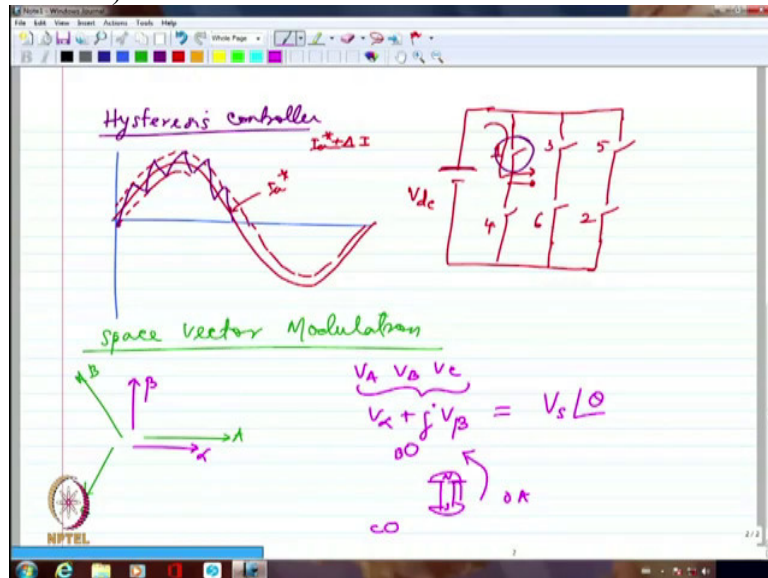 Note1 - Windows Journal
File Edit View Insert Actions Tools Help
Whole Page
B I
Hysteresis controller
Ia* + Δ I
Ia*
Vdc
1 3 5
4 6 2
Space Vector Modulation
B
β
A
α
VA VB Vc
Vα + j Vβ = Vs∠θ
B
N
S
A
C
NPTEL
2
2 / 2